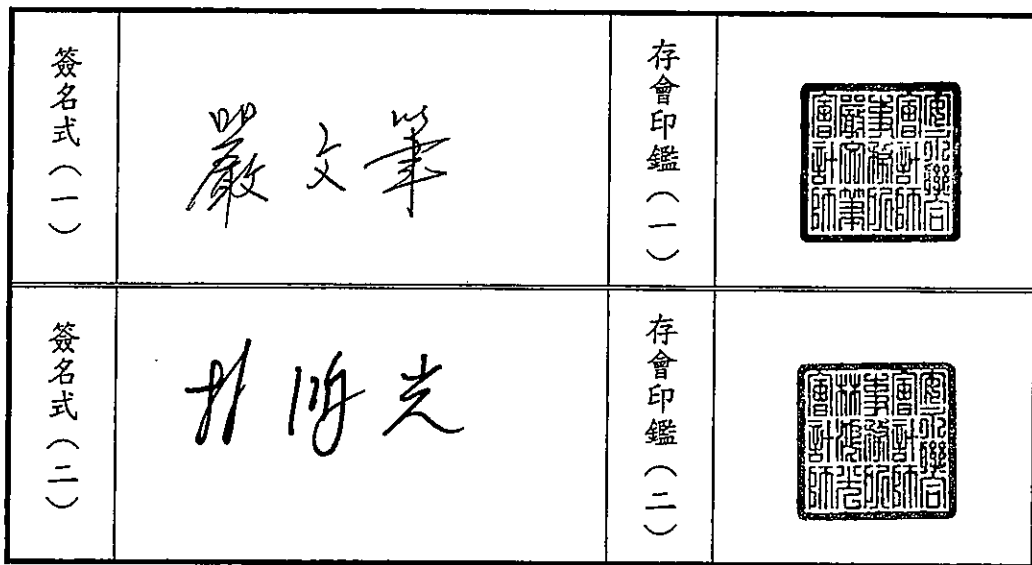 簽名式（一）
嚴文筆
存會印鑑（一）
安永聯合
會計師
事務所
嚴文筆
會計師
簽名式（二）
林鴻光
存會印鑑（二）
安永聯合
會計師
事務所
林鴻光
會計師